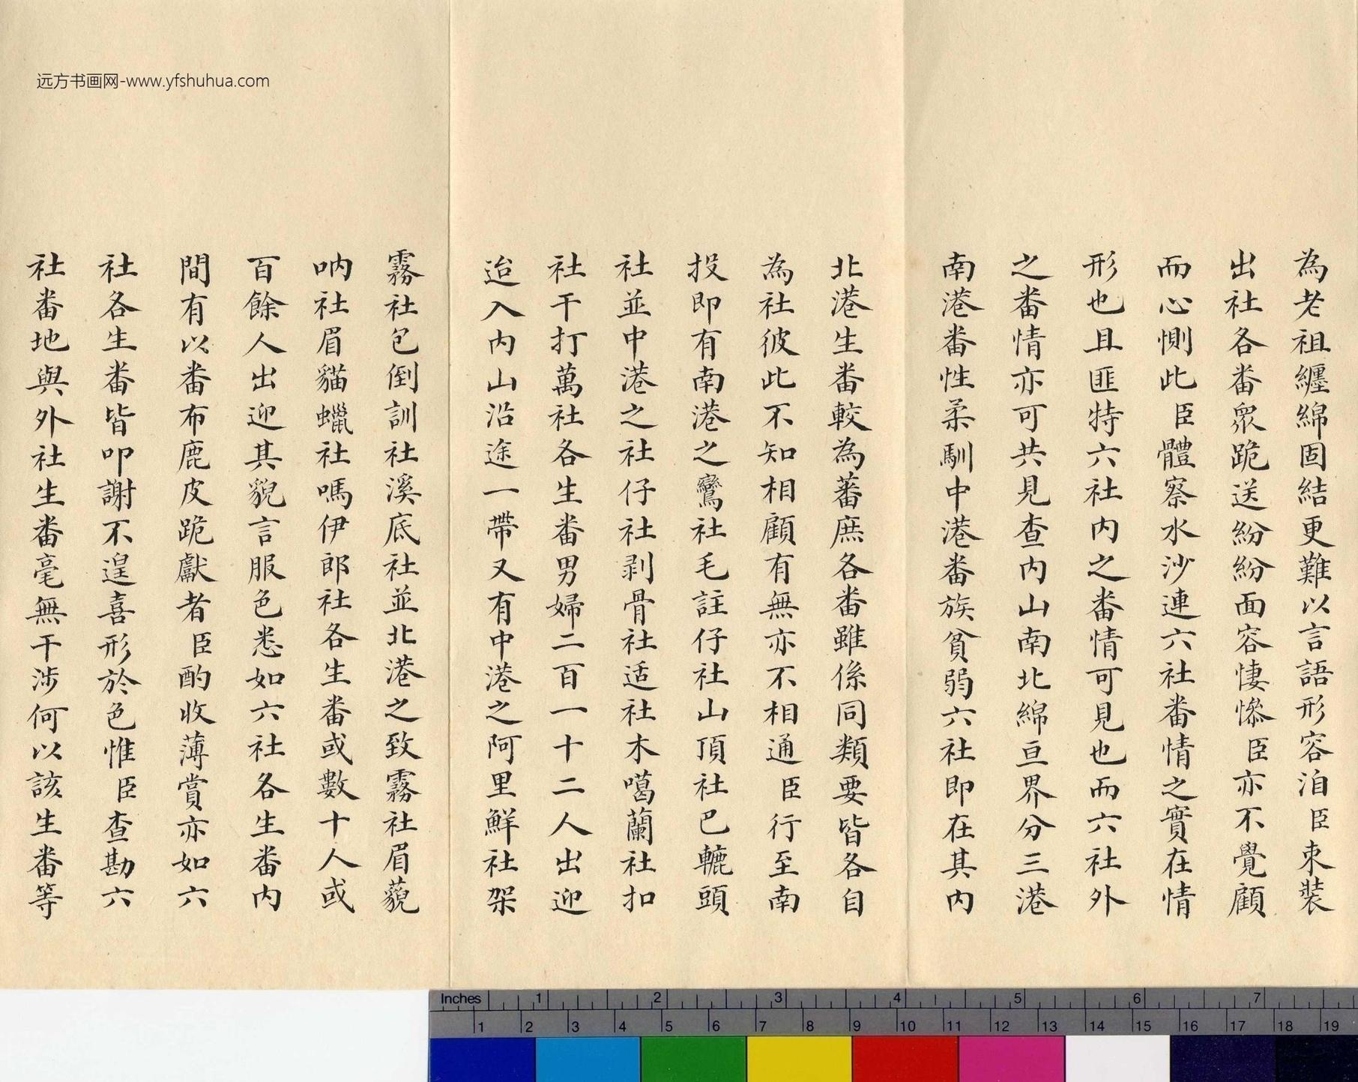 远方书画网-www.yfshuhua.com
為老祖纏綿固結更難以言語形容洎臣束裝
出社各番眾跪送紛紛面容悽慘臣亦不覺顧
而心惻此臣體察水沙連六社番情之實在情
形也且匪特六社內之番情可見也而六社外
之番情亦可共見查內山南北綿亘界分三港
南港番性柔馴中港番族貧弱六社即在其內
北港生番較為蕃庶各番雖係同類要皆各自
為社彼此不知相顧有無亦不相通臣行至南
投即有南港之鸞社毛註仔社山頂社巴轆頭
社並中港之社仔社剥骨社适社木噶蘭社扣
社干打萬社各生番男婦二百一十二人出迎
迨入內山沿途一帶又有中港之阿里鮮社架
霧社包倒訓社溪底社並北港之致霧社眉藐
吶社眉貓蠟社嗎伊郎社各生番或數十人或
百餘人出迎其貌言服色悉如六社各生番內
間有以番布鹿皮跪獻者臣酌收薄賞亦如六
社各生番皆叩謝不遑喜形於色惟臣查勘六
社番地與外社生番毫無干涉何以該生番等
Inches 1 2 3 4 5 6 7
1 2 3 4 5 6 7 8 9 10 11 12 13 14 15 16 17 18 19